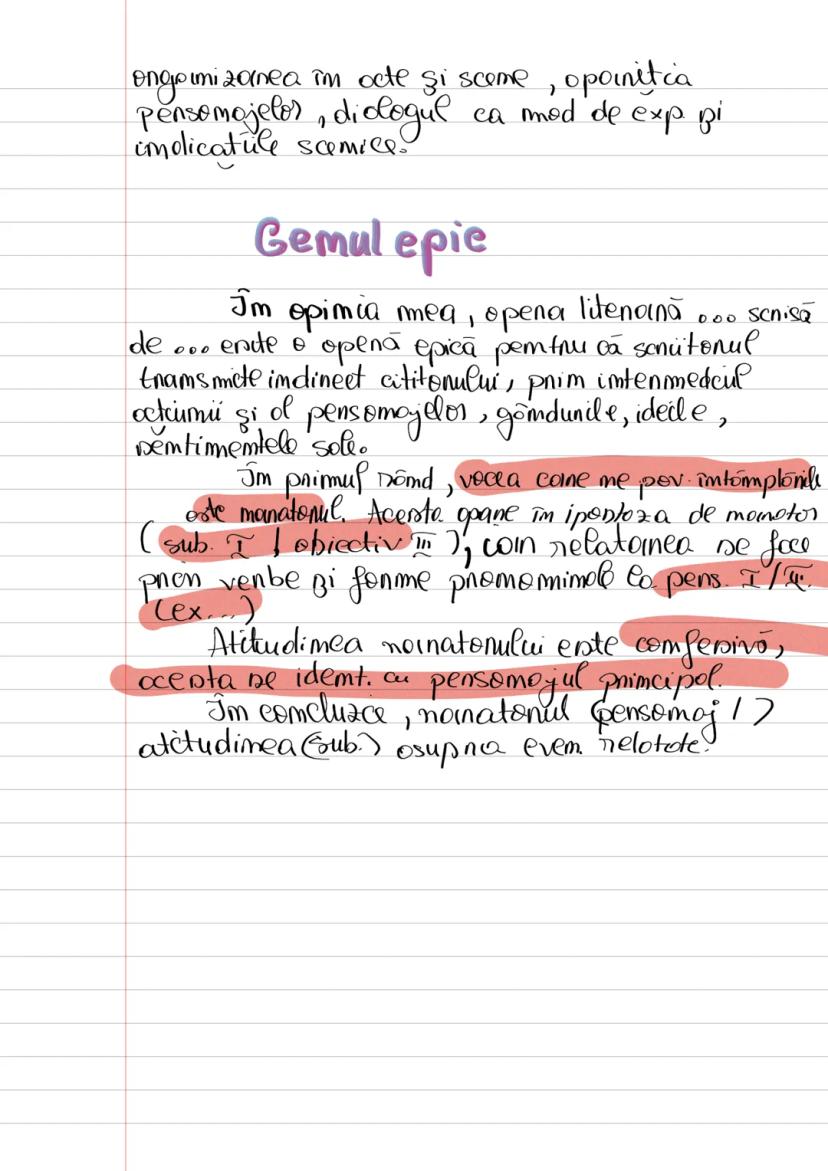 organizarea în acte și scene, apariția
personajelor, dialogul ca mod de exp. și
indicațiile scenice.
Genul epic
În opinia mea, opera literară ... scrisă
de ... este o operă epică pentru că scriitorul
transmite indirect cititorului, prin intermediul
acțiunii și al personajelor, gândurile, ideile,
sentimentele sale.
În primul rând, vocea care ne pov. întâmplările
este naratorul. Acesta apare în ipostaza de narator
(sub. I / obiectiv III), iar relatarea se face
prin verbe și forme pronominale la pers. I/III.
(ex...)
Atitudinea naratorului este confesivă,
acesta se ident. cu personajul principal.
În concluzie, naratorul (personaj / )
atitudinea (sub.) asupra evem. relatate.